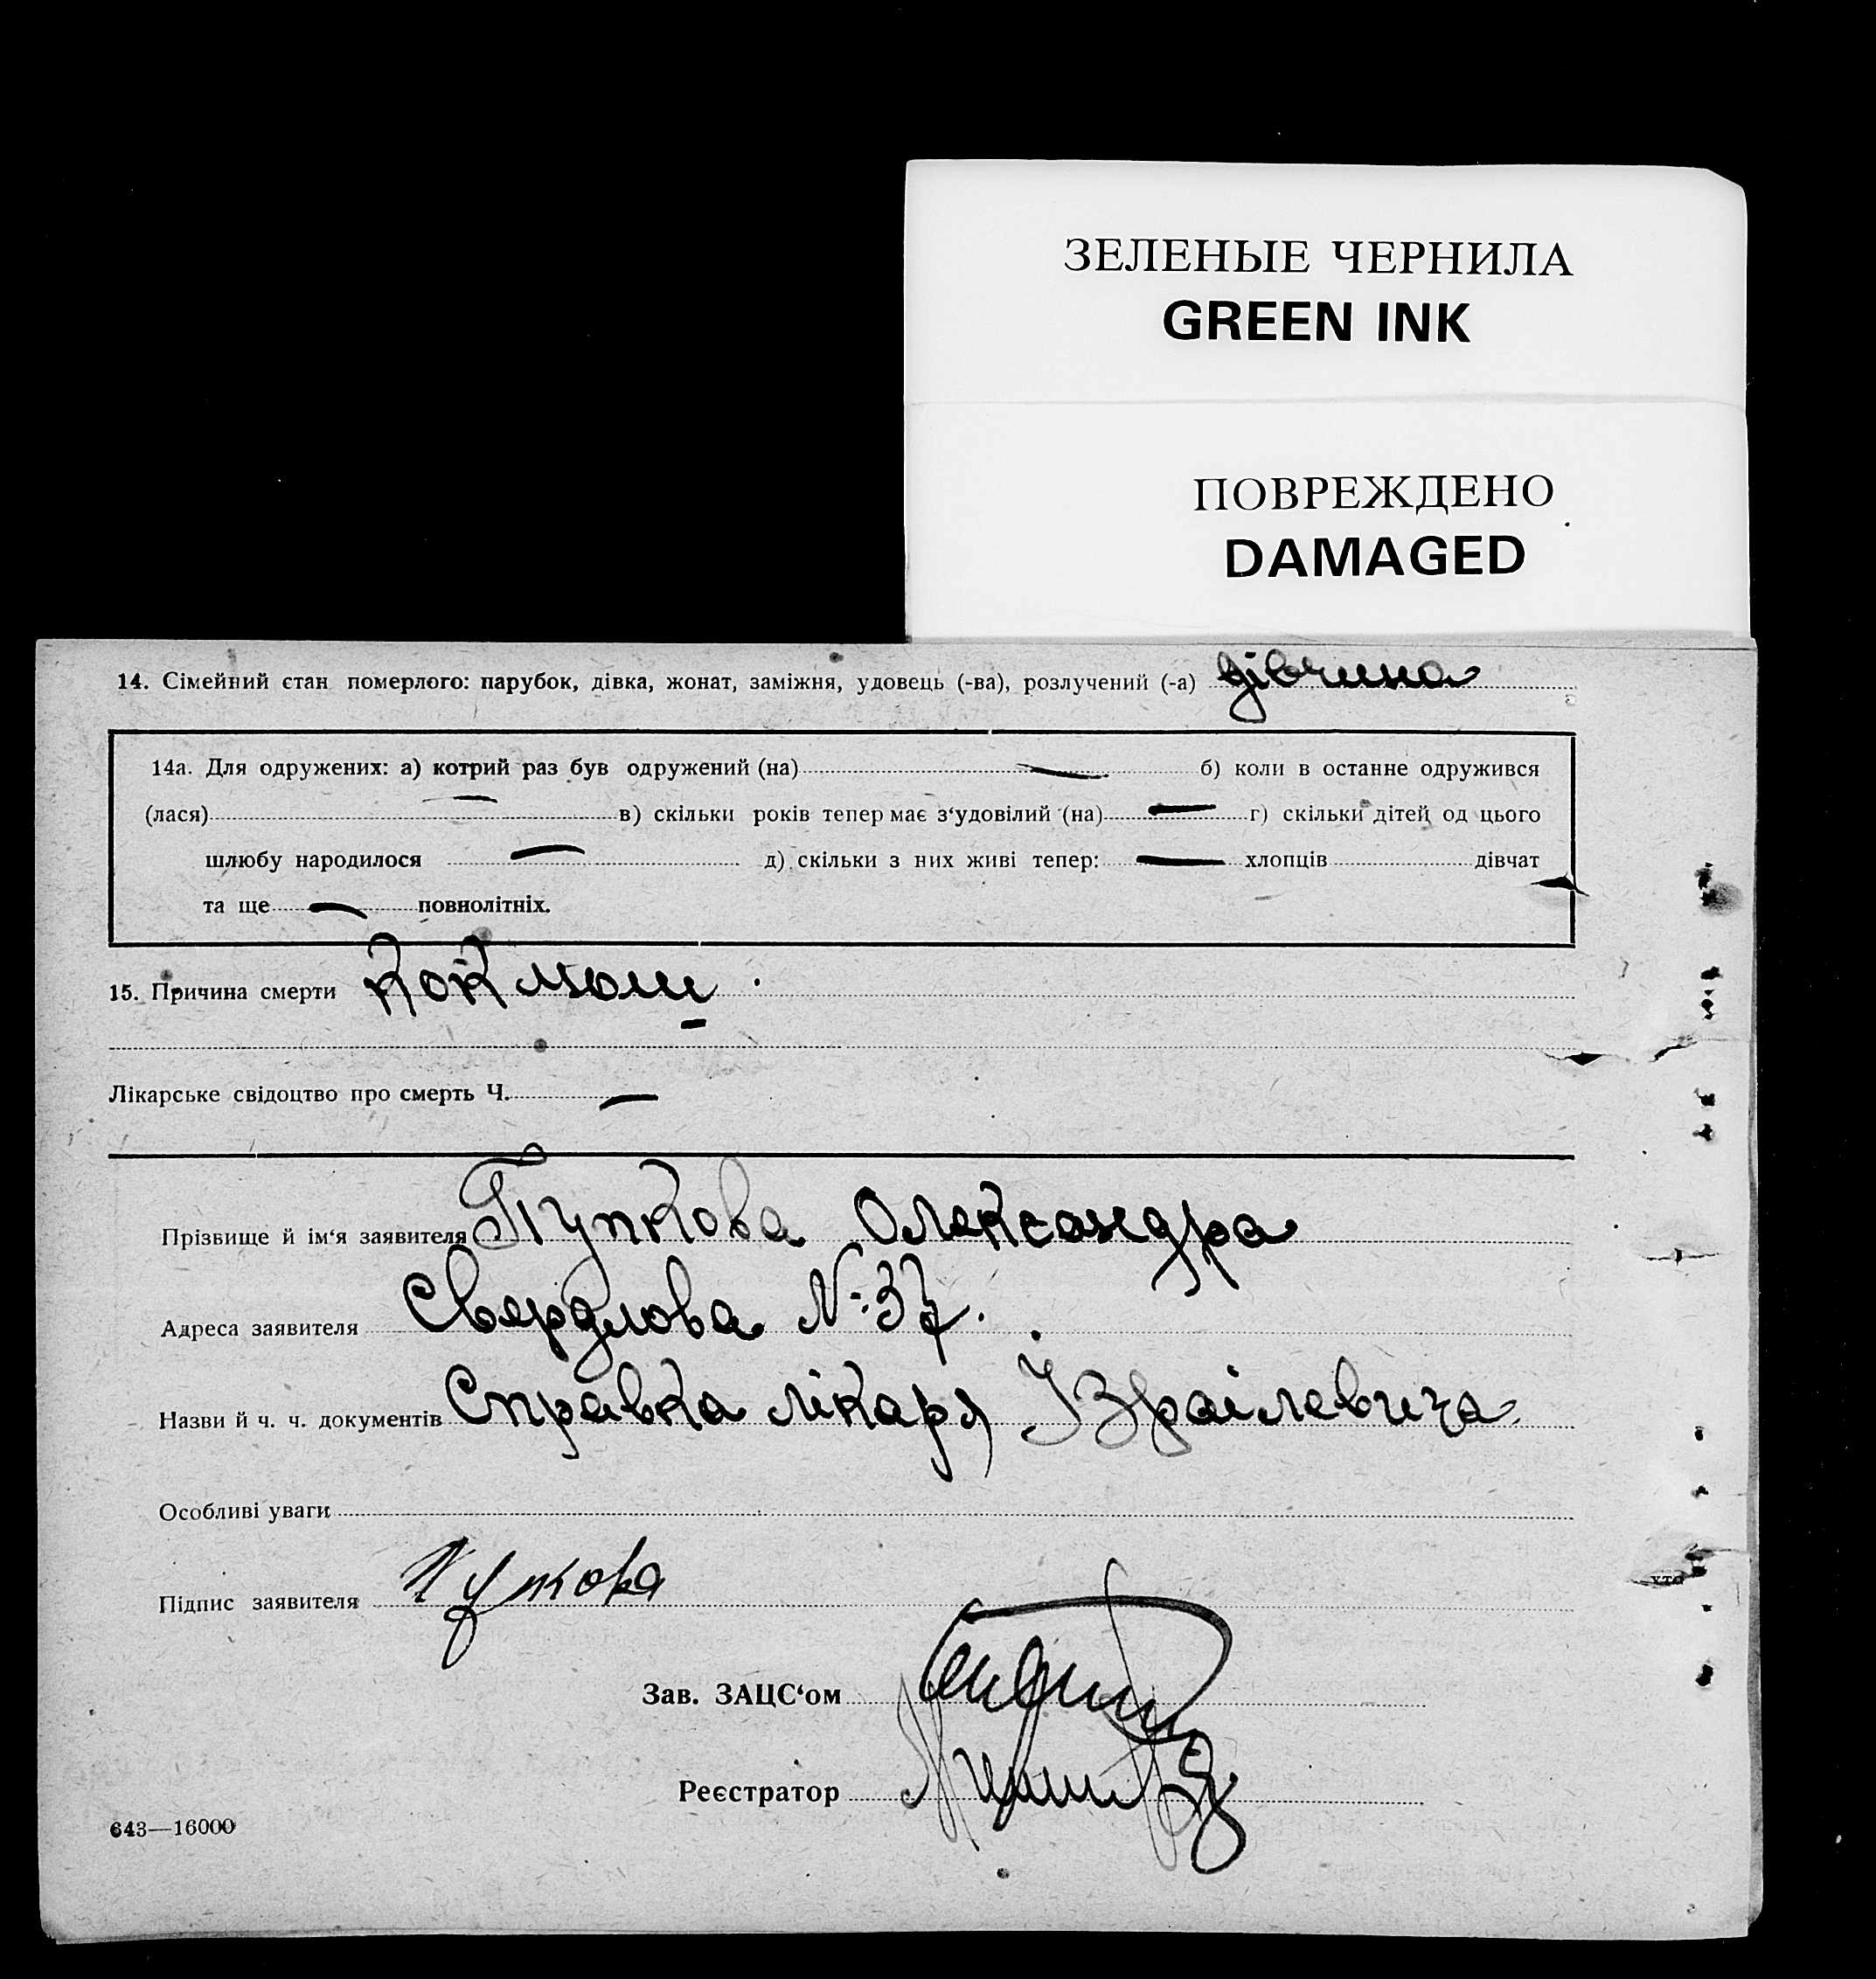 ЗЕЛЕНЫЕ ЧЕРНИЛА
GREEN INK
ПОВРЕЖДЕНО
DAMAGED
14. Сімейний стан померлого: парубок, дівка, жонат, заміжня, удовець (-ва), розлучений (-а) дівчина
14а. Для одружених: а) котрий раз був одружений (на) — б) коли в останнє одружився
(лася) — в) скільки років тепер має з‘удовілий (на) — г) скільки дітей од цього
шлюбу народилося — д) скільки з них живі тепер: — хлопців дівчат
та ще — повнолітніх.
15. Причина смерти Коклюш
Лікарське свідоцтво про смерть Ч. —
Прізвище й ім‘я заявителя Пупкова Олександра
Адреса заявителя Свердлова №37.
Назви й ч. ч. документів Справка лікаря Ізраілевича
Особливі уваги
Підпис заявителя
Зав. ЗАЦС‘ом
Реєстратор
643—16000